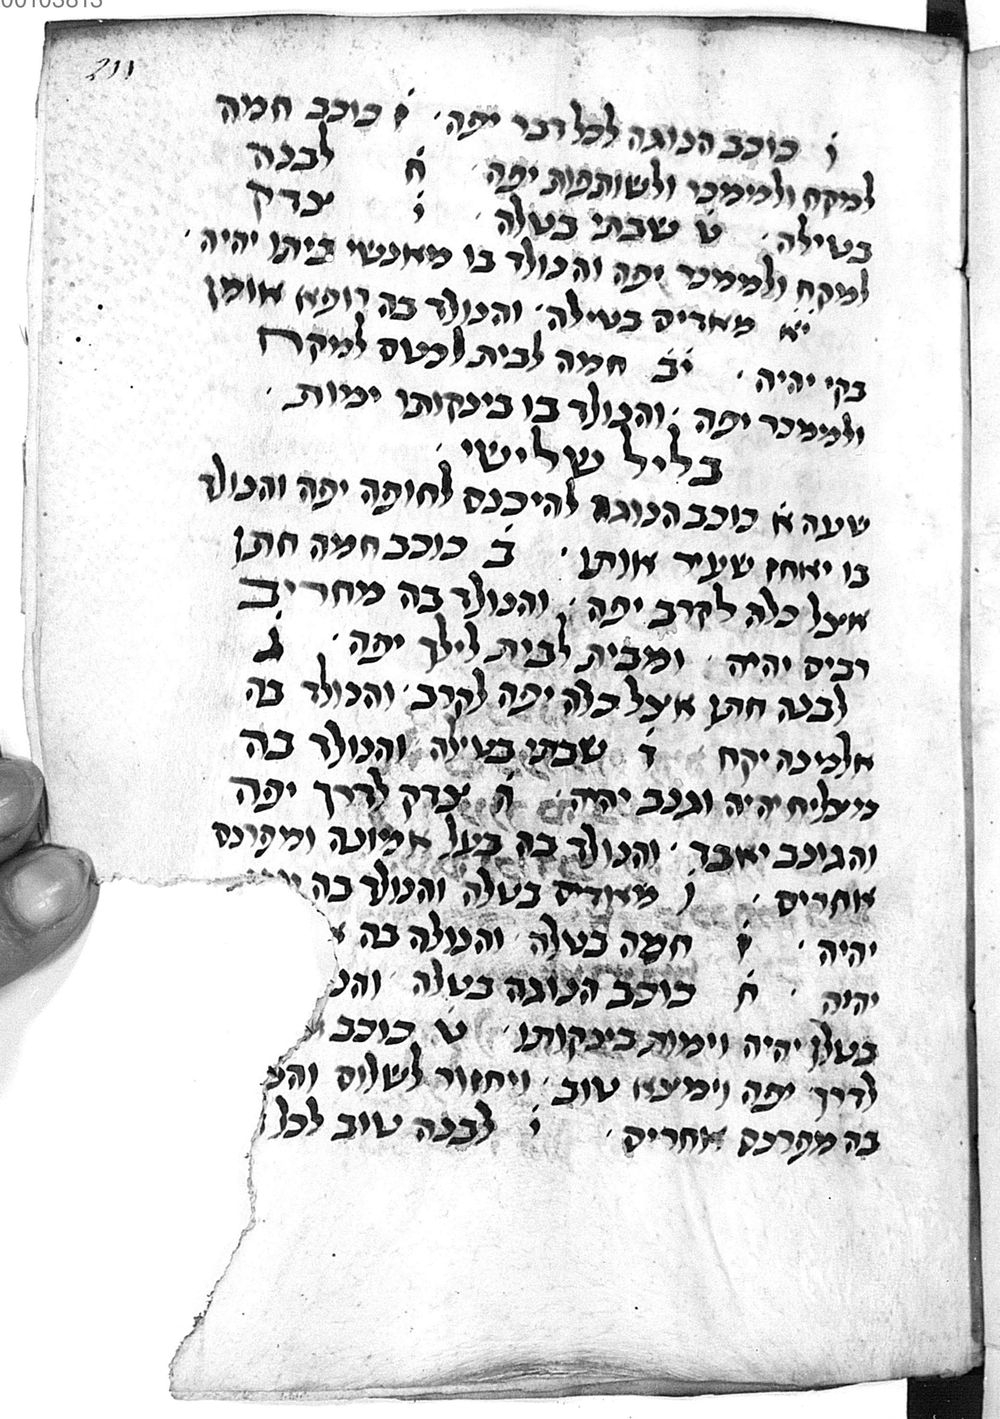 00103813
211
ו כוכב הנוגה לכל דבר יפה · ז כוכב חמה
למקח ולמימכר ולשותפות יפה · ח לבנה
בטילה · ט שבתי בטלה · י צדק
למקח ולממכר יפה והנולד בו מאנשי ביתו יהיה ·
יא מאדים בטילה · והנולד בה רופא אומן
בקי יהיה · יב חמה לבית לכנוס למקח
ולממכר יפה · והנולד בו בינקותו ימות ·
בליל שלישי ·
שעה א כוכב הנוגה להיכנס לחופה יפה והנולד
בו יאחז שעיר אותו · ב כוכב חמה חתן
אצל כלה לקרב יפה · והנולד בה מחריב
רבים יהיה · ומבית לבית לילך יפה · ג
לבנה חתן אצל כלה יפה לקרב · והנולד בה
אלמנה יקח ד שבתי בטילה · והנולד בה
מצליח יהיה וגנב יהיה · ה צדק לדרך יפה
והגונב יאבד · והנולד בה בעל אמונה ומפרנס
אחרים · ו מאדים בטלה והנולד בה
יהיה · ז חמה בטלה · והנולד בה
יהיה · ח כוכב הנוגה בטלה · והנ
בטלן יהיה וימות בינקותו · ט כוכב
לדרך יפה וימצא טוב · ויחזור לשלום והנ
בה מפרנס אחרים · י לבנה טוב לכל